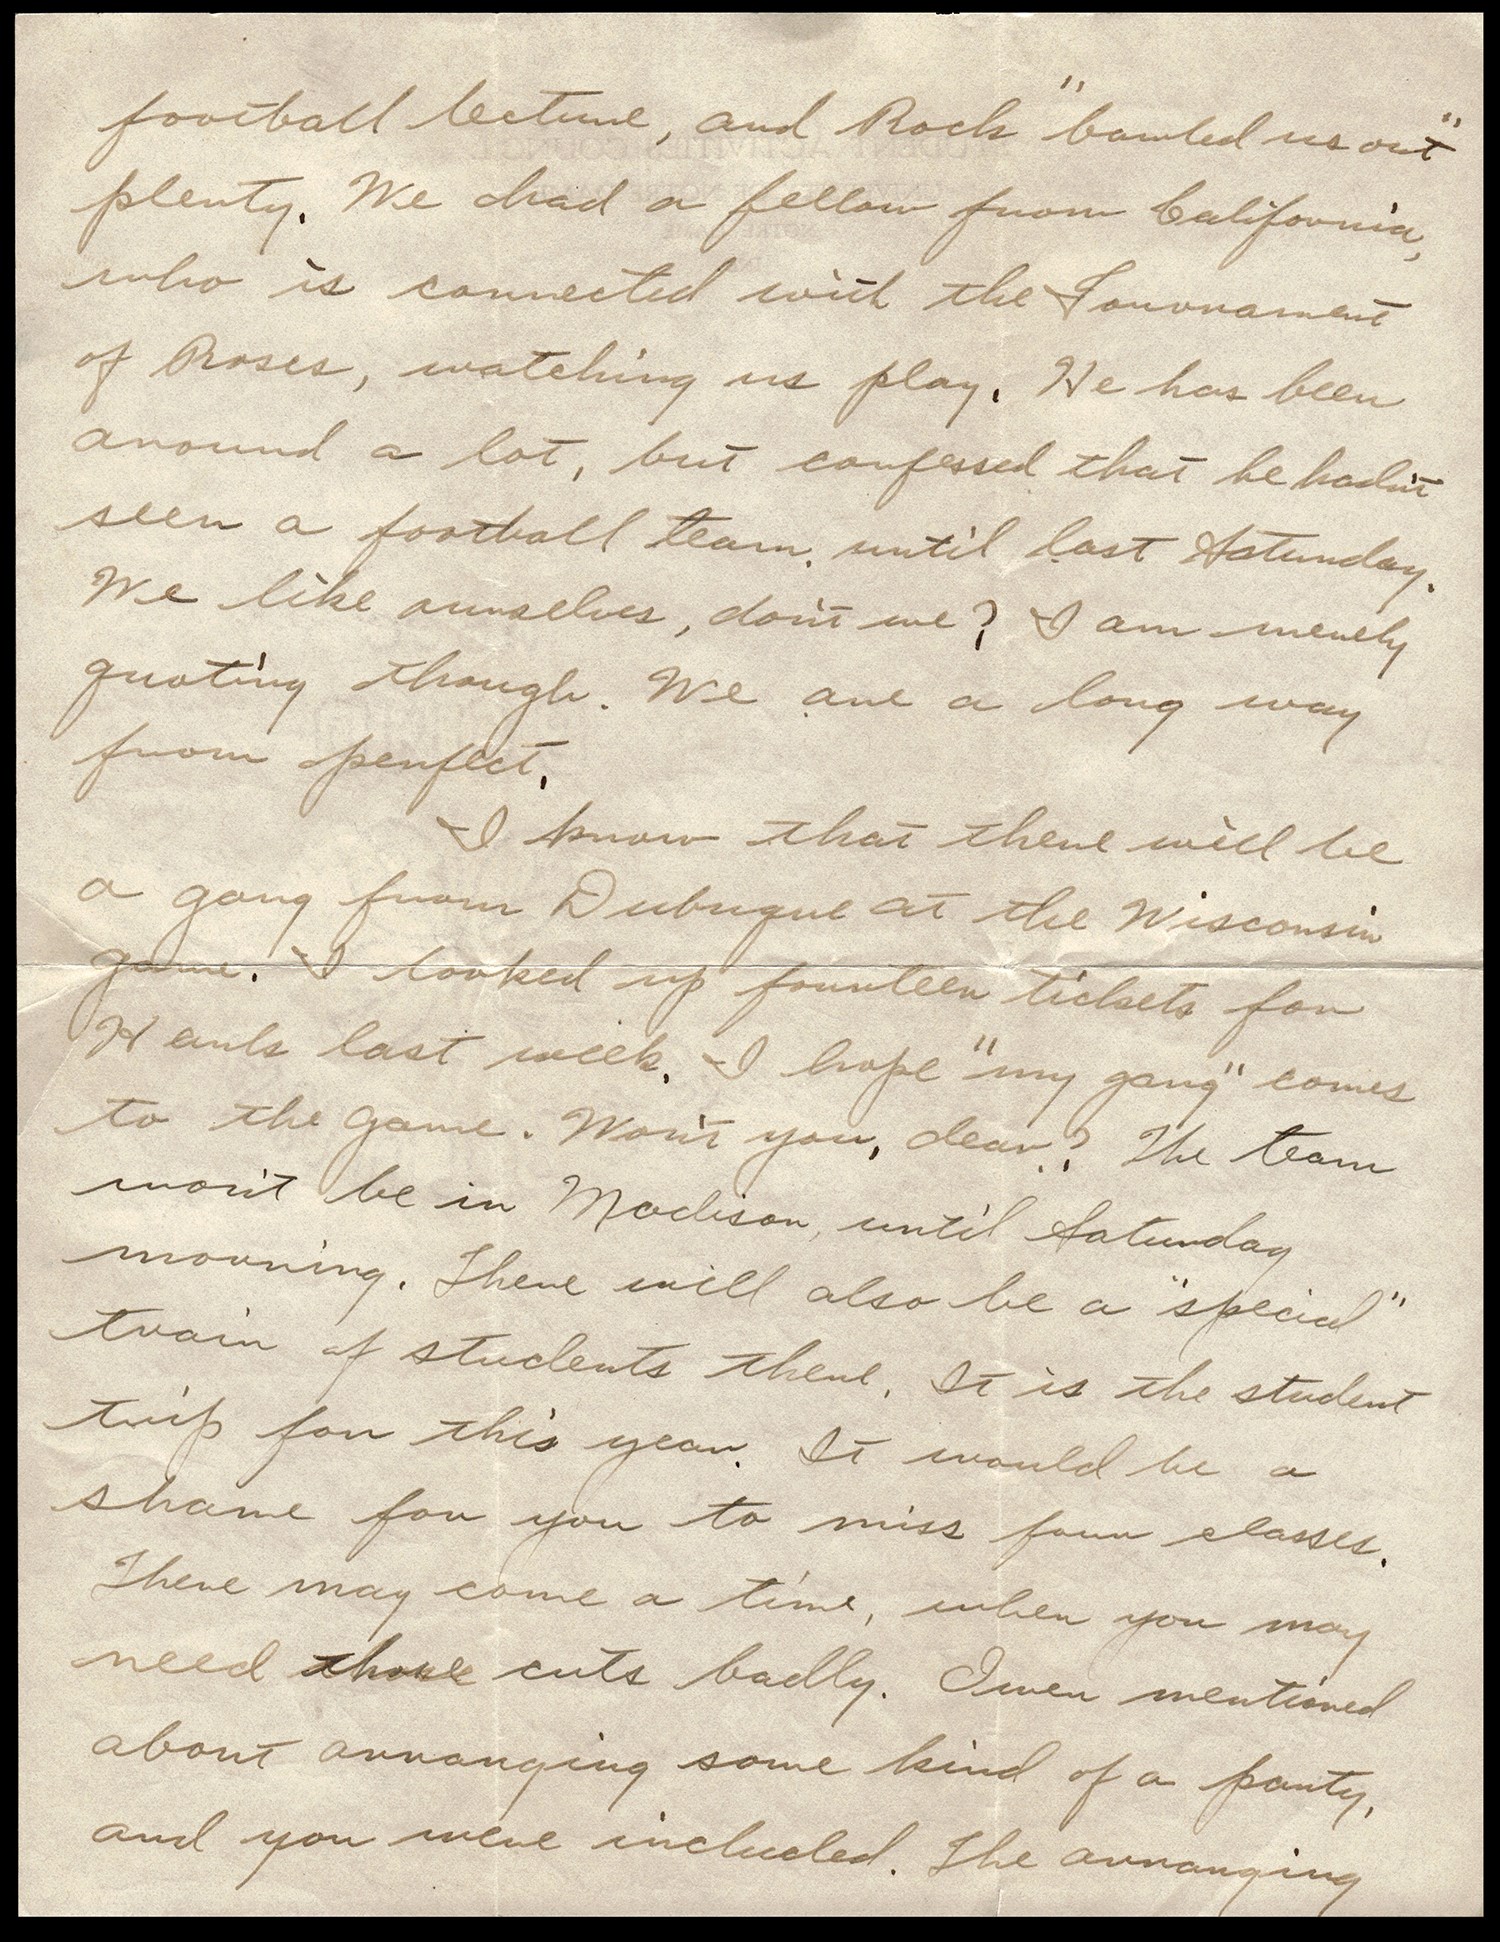 football lecture, and Rock "bawled us out"
plenty. We had a fellow from California,
who is connected with the Tournament
of Roses, watching us play. He has been
around a lot, but confessed that he hadn't
seen a football team, until last Saturday.
We like ourselves, don't we? I am merely
quoting though. We are a long way
from perfect.
I know that there will be
a gang from Dubuque at the Wisconsin
game. I looked up fourteen tickets for
last week. I hope "my gang" comes
to the game. Won't you, dear? The team
won't be in Madison, until Saturday
morning. There will also be a "special"
train of students there. It is the student
trip for this year. It would be a
shame for you to miss four classes.
There may come a time, when you may
need those cuts badly. Irwen mentioned
about arranging some kind of a party,
and you were included. The arranging